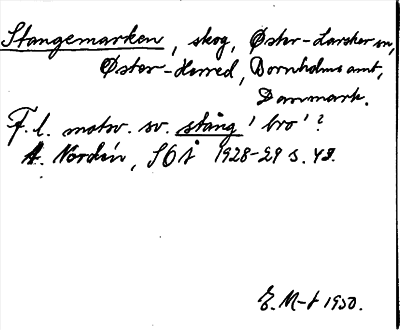 Stangemarken, skog, Øster-Larsker sn,
Øster-Herred, Bornholms amt,
Danmark.
F. l. motsv. sv. stång 'bro'?
A. Nordén, SOÅ 1928-29 s. 49.
E. M-t 1930.